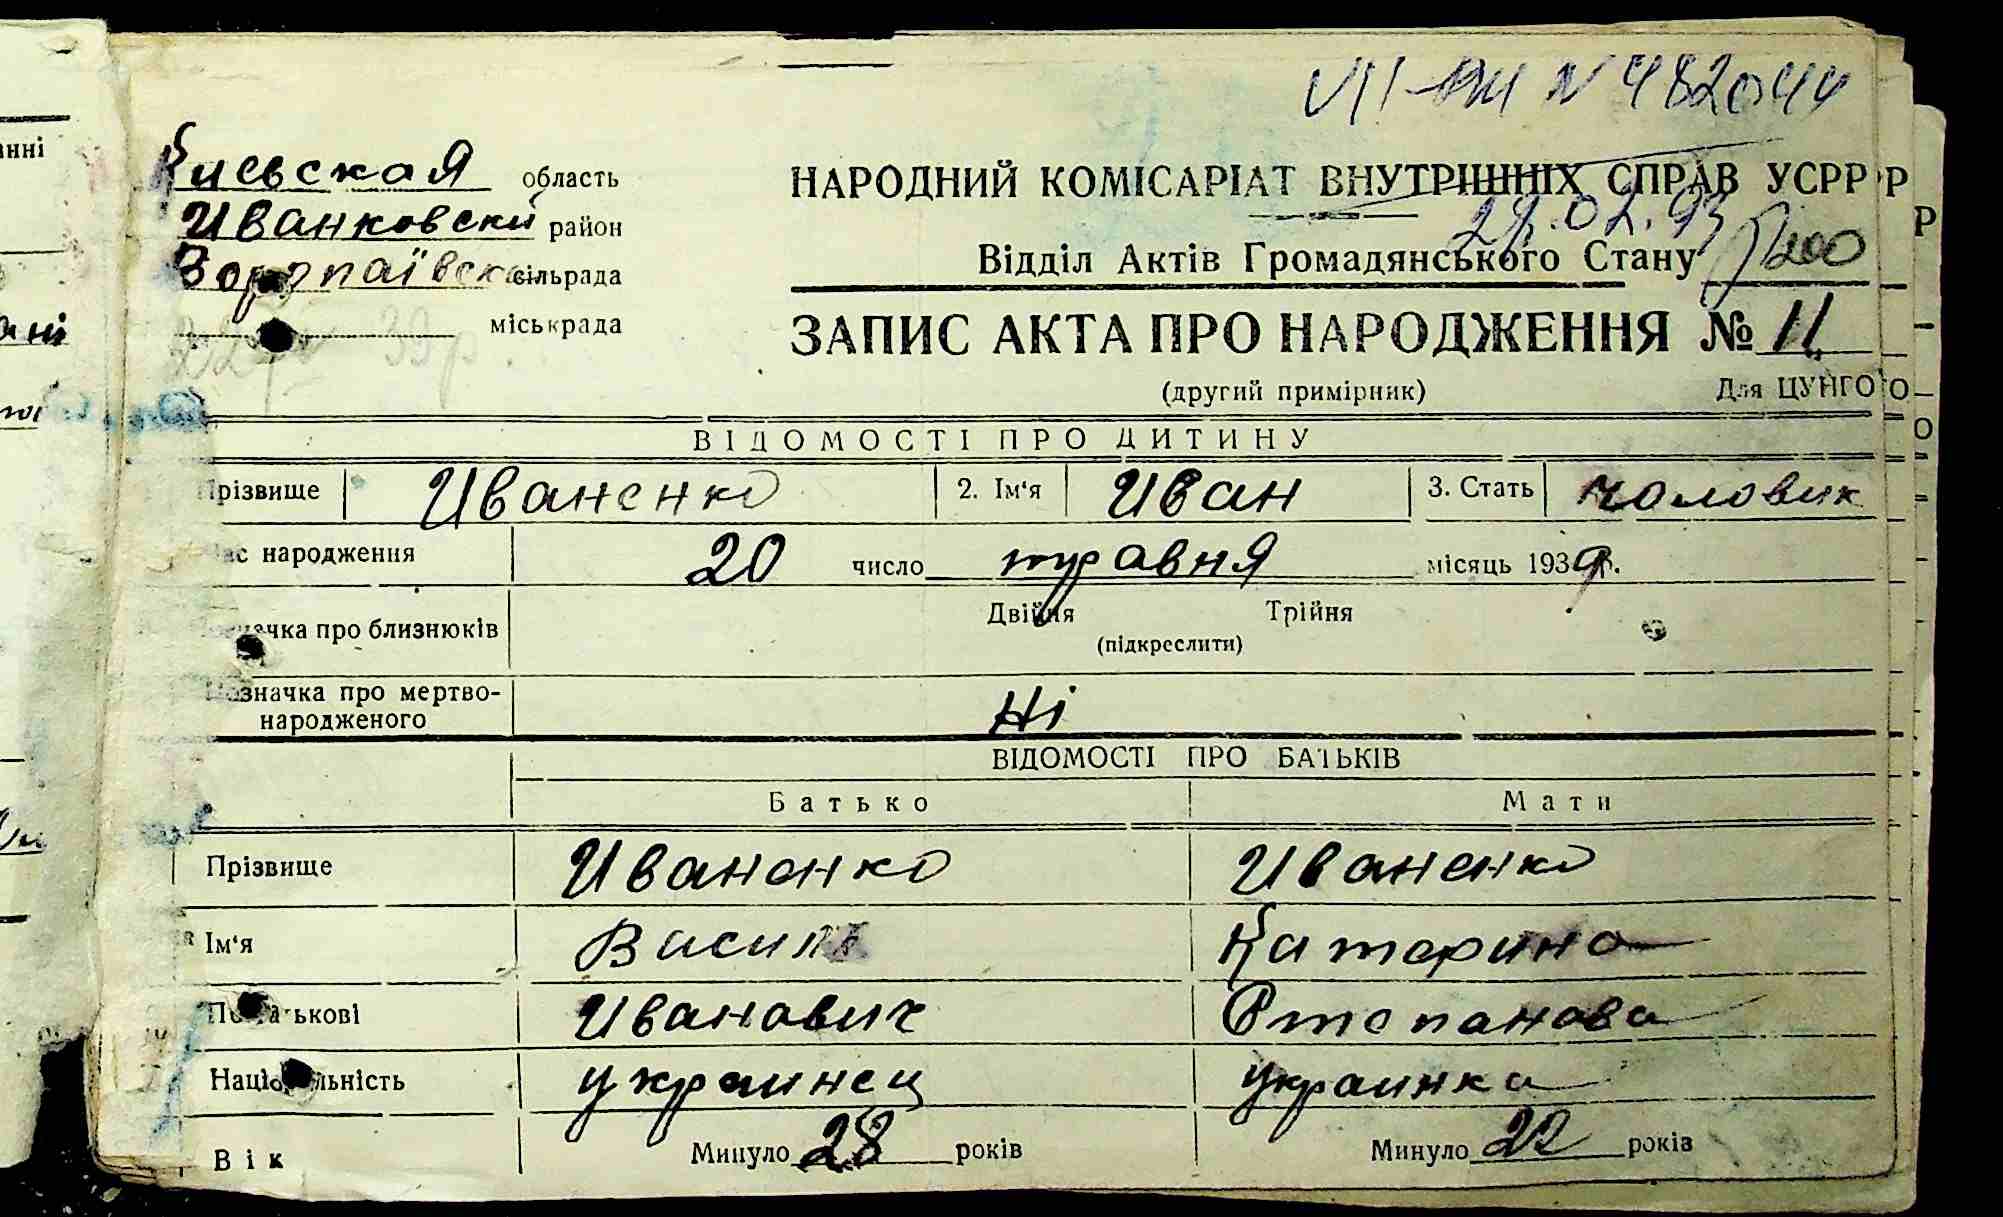 VII-АМ N 482044
Киевская область
НАРОДНИЙ КОМІСАРІАТ ВНУТРІШНІХ СПРАВ УСРР
Иванковски район
29.02.93
сільрада
Відділ Актів Громадянського Стану
міськрада
39 р.
ЗАПИС АКТА ПРО НАРОДЖЕННЯ № 11
(другий примірник)
Для ЦУНГО
ВІДОМОСТІ ПРО ДИТИНУ
Прізвище Иваненко 2. Ім'я Иван 3. Стать чоловик
народження 20 число травня місяць 1939 р.
про близнюків Двійня Трійня
(підкреслити)
Позначка про мертво-
народженого Ні
ВІДОМОСТІ ПРО БАТЬКІВ
Батько Мати
Прізвище Иваненко Иваненко
Ім'я Василь Катерина
По батькові Иванович Степанова
Національність украинец украинка
Вік Минуло 28 років Минуло 22 років